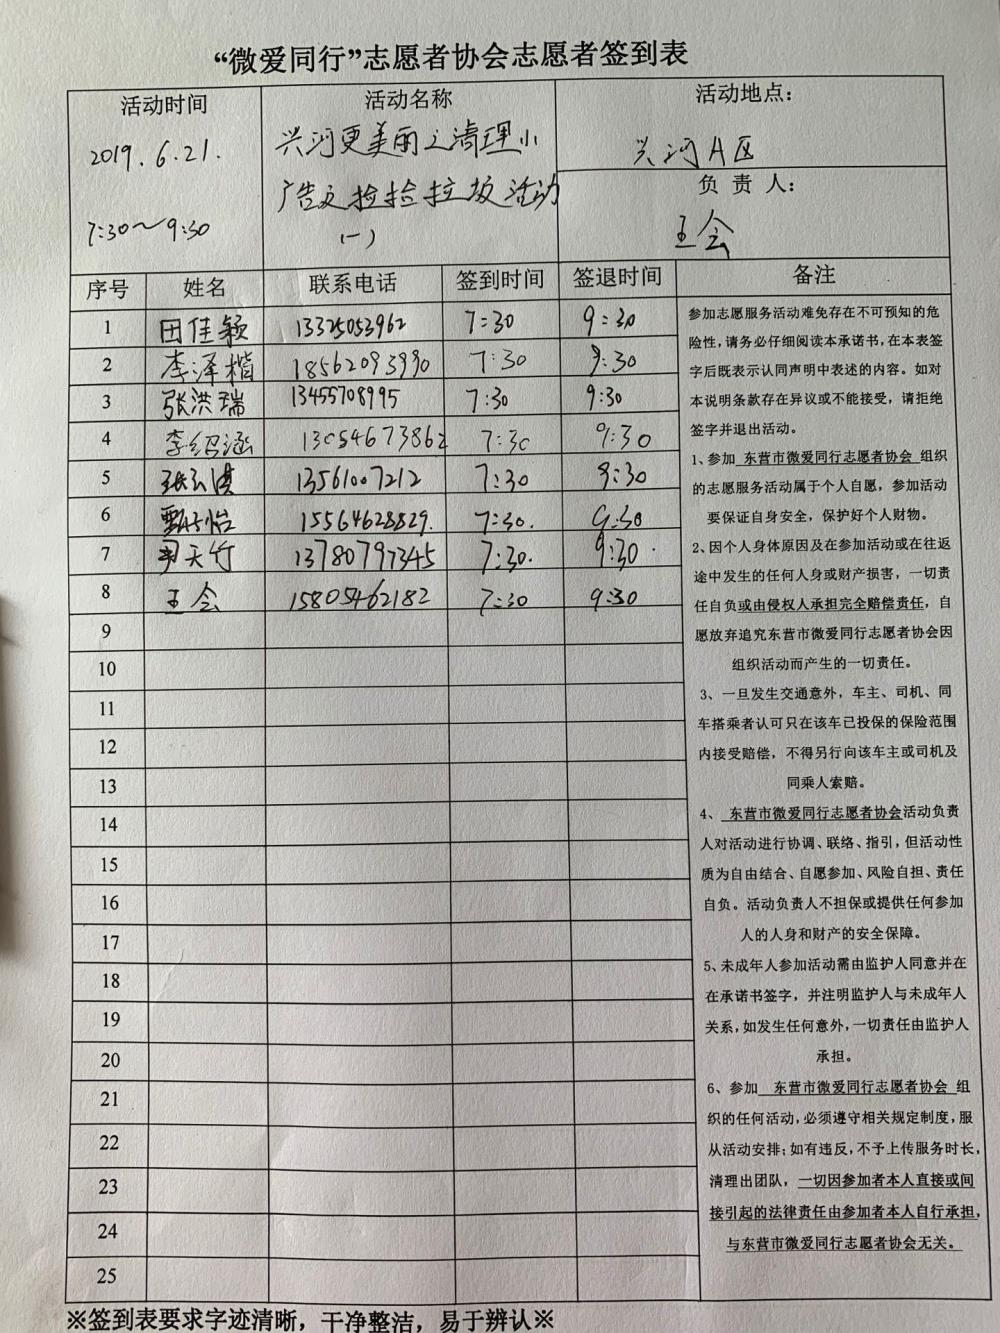 “微爱同行”志愿者协会志愿者签到表
活动时间
2019.6.21.
7:30～9:30
活动名称
兴河更美丽之清理小
广告及捡拾垃圾活动
(一)
活动地点：
兴河A区
负 责 人：
王会
序号 姓名 联系电话 签到时间 签退时间 备注
1 田佳颖 13325053962 7:30 9:30
2 李泽楷 18562093990 7:30 9:30
3 张洪瑞 13455708995 7:30 9:30
4 李绍涵 13054673862 7:30 9:30
5 13561007212 7:30 9:30
6 甄怡 15564628829. 7:30. 9:30
7 天竹 13780797345 7:30. 9:30.
8 王会 15805462182 7:30 9:30
9
10
11
12
13
14
15
16
17
18
19
20
21
22
23
24
25
参加志愿服务活动难免存在不可预知的危
险性，请务必仔细阅读本承诺书，在本表签
字后既表示认同声明中表述的内容。如对
本说明条款存在异议或不能接受，请拒绝
签字并退出活动。
1、参加 东营市微爱同行志愿者协会 组织
的志愿服务活动属于个人自愿，参加活动
要保证自身安全，保护好个人财物。
2、因个人身体原因及在参加活动或在往返
途中发生的任何人身或财产损害，一切责
任自负或由侵权人承担完全赔偿责任，自
愿放弃追究东营市微爱同行志愿者协会因
组织活动而产生的一切责任。
3、一旦发生交通意外，车主、司机、同
车搭乘者认可只在该车已投保的保险范围
内接受赔偿，不得另行向该车主或司机及
同乘人索赔。
4、 东营市微爱同行志愿者协会活动负责
人对活动进行协调、联络、指引，但活动性
质为自由结合、自愿参加、风险自担、责任
自负。活动负责人不担保或提供任何参加
人的人身和财产的安全保障。
5、未成年人参加活动需由监护人同意并在
在承诺书签字，并注明监护人与未成年人
关系，如发生任何意外，一切责任由监护人
承担。
6、参加 东营市微爱同行志愿者协会 组
织的任何活动，必须遵守相关规定制度，服
从活动安排；如有违反，不予上传服务时长，
清理出团队，一切因参加者本人直接或间
接引起的法律责任由参加者本人自行承担，
与东营市微爱同行志愿者协会无关。
※签到表要求字迹清晰，干净整洁，易于辨认※